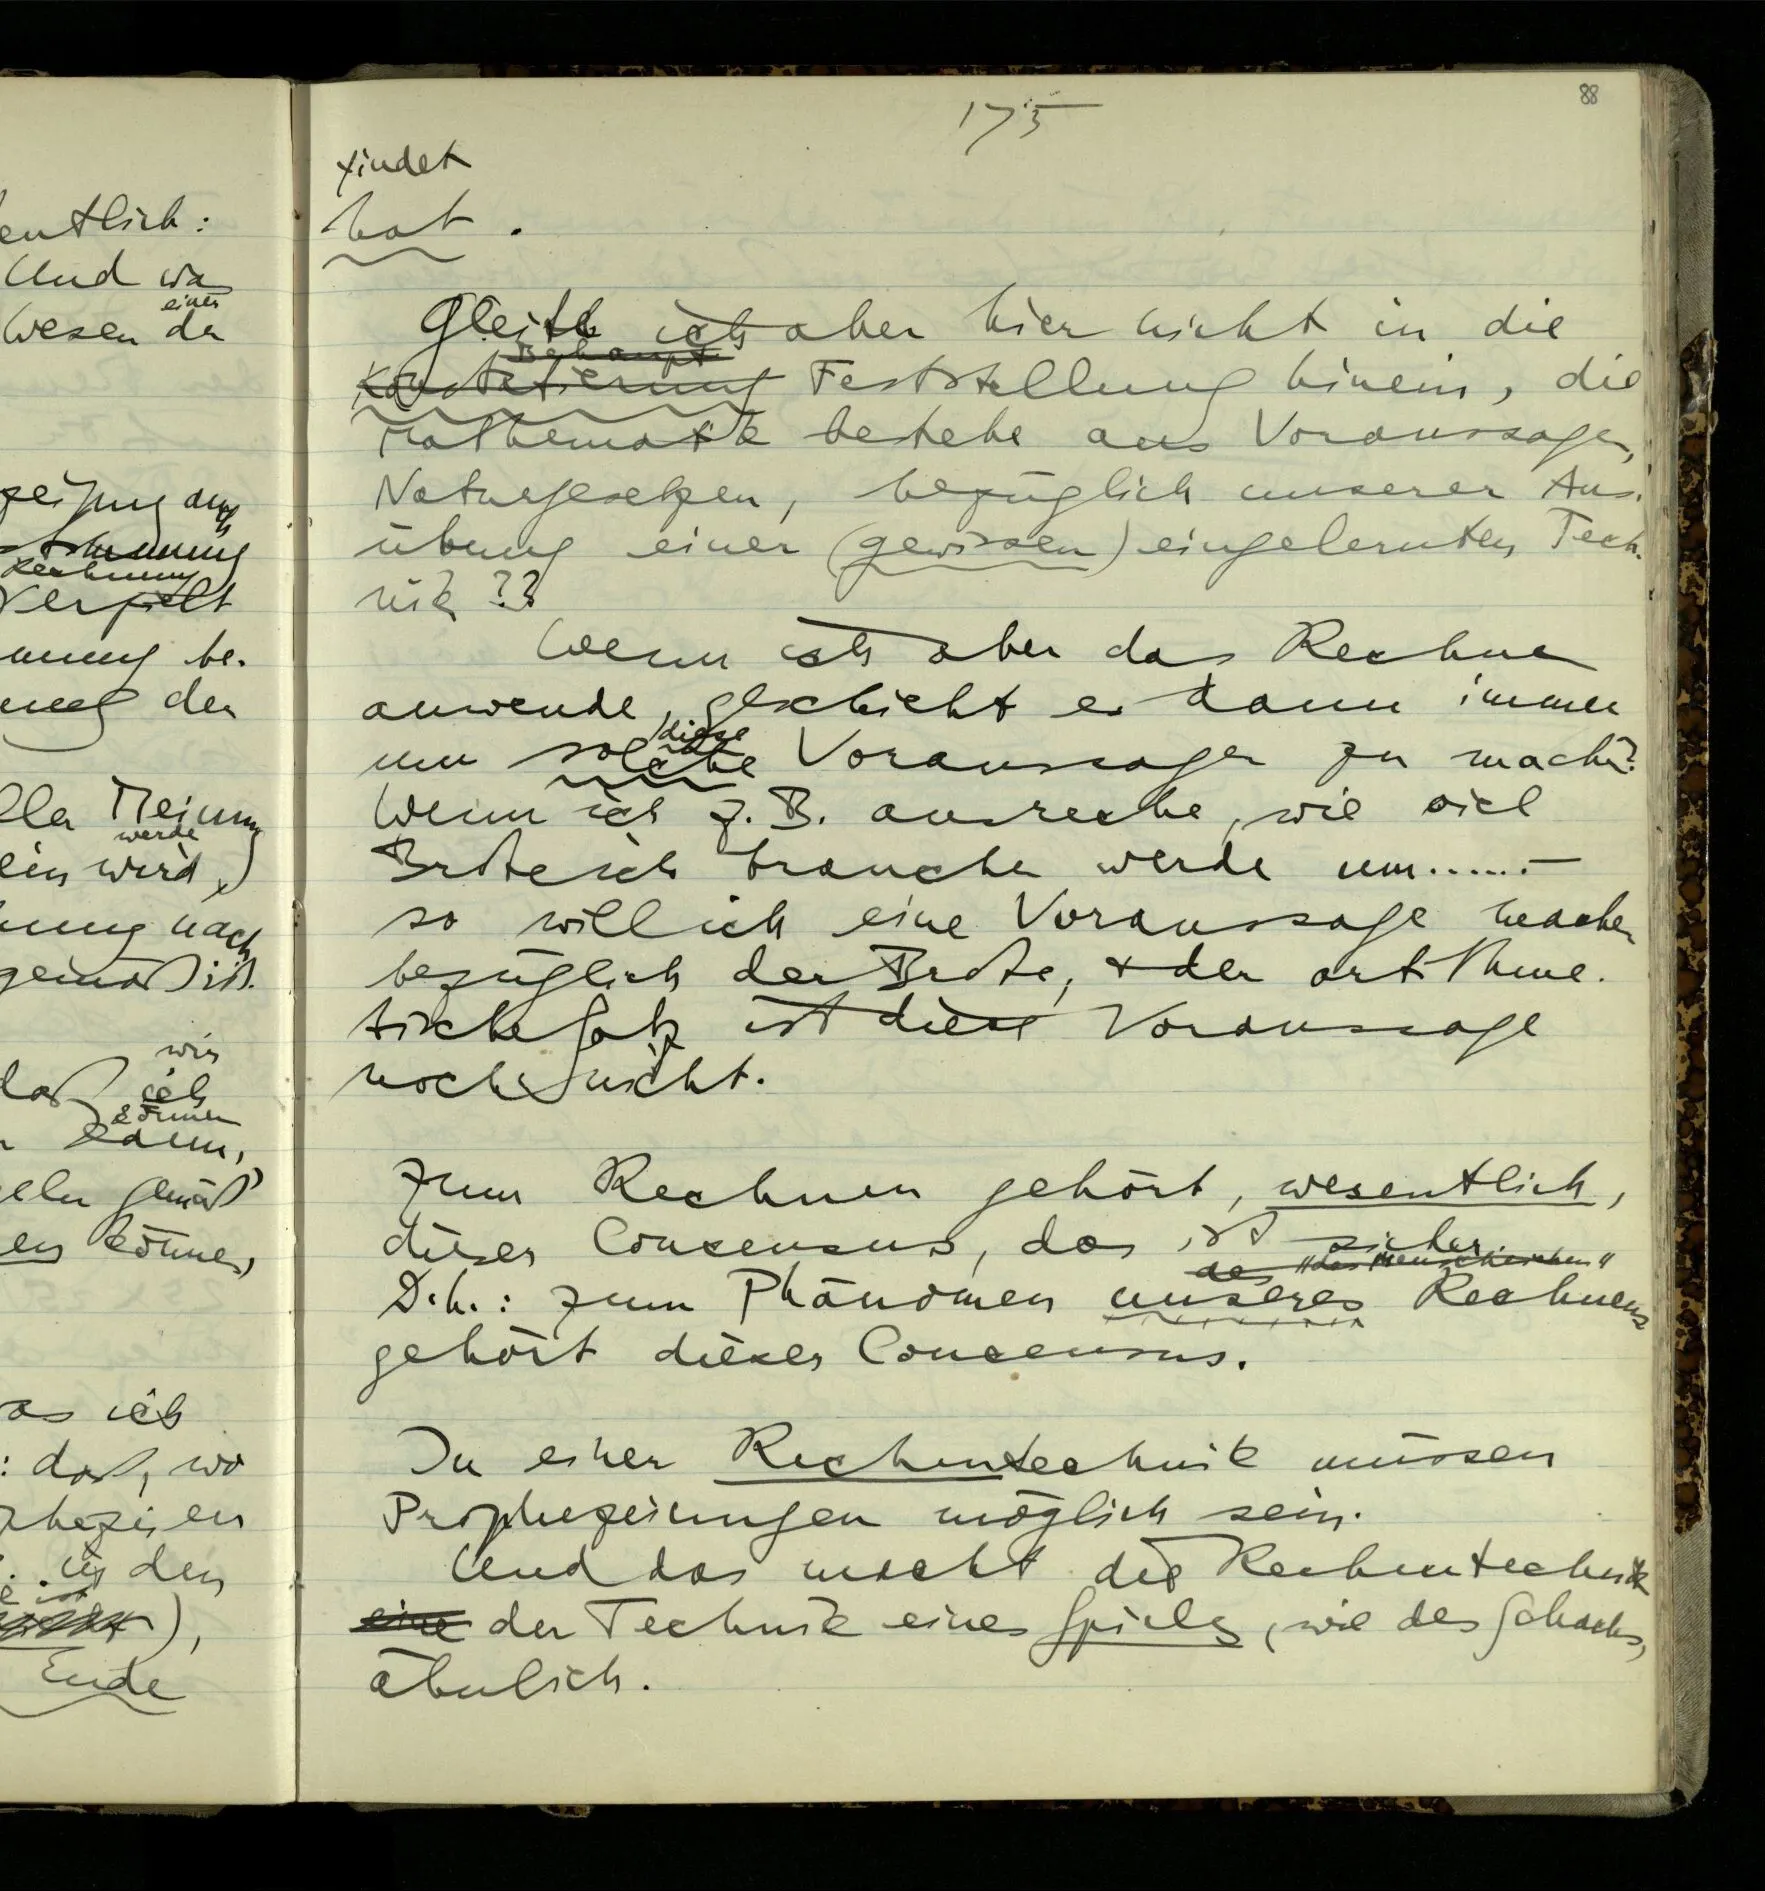 entlich:
Und wa
eines
Wesen da
zeijung auf
Rechnung
verspielt
nung be-
nung den
lla Meinung
werde
ein wird,)
nung nach
gemäß ist.
wir
daß ich
können
kann,
eln gemäß
en könne,
as ich
: daß, wo
phezeien
in den
ist
),
Ende
175
88
findet
hat.
Gleite ich aber hier nicht in die
Behaupt
Konstatierung Feststellung hinein, die
Mathematik bestehe aus Voraussagen,
Naturgesetzen, bezüglich unserer Aus-
übung einer (gewissen) eingelernten Tech-
nik??
Wenn ich aber das Rechnen
anwende, geschieht es dann immer
diese
um solche Voraussagen zu machen?
Wenn ich z.B. ausrechne, wie viel
Brote ich brauchen werde um......–
so will ich eine Voraussage machen
bezüglich der Brote, + der arithme-
tische Satz ist diese Voraussage
noch nicht.
Zum Rechnen gehört, wesentlich,
dieser Consensus, das ist sicher.
des "des Menschlichen"
D.h.: zum Phänomen unseres Rechnens
gehört dieser Consensus.
In einer Rechentechnik müssen
Prophezeiungen möglich sein.
Und das macht die Rechentechnik
eine der Technik eines Spiels, wie des Schachs,
ähnlich.